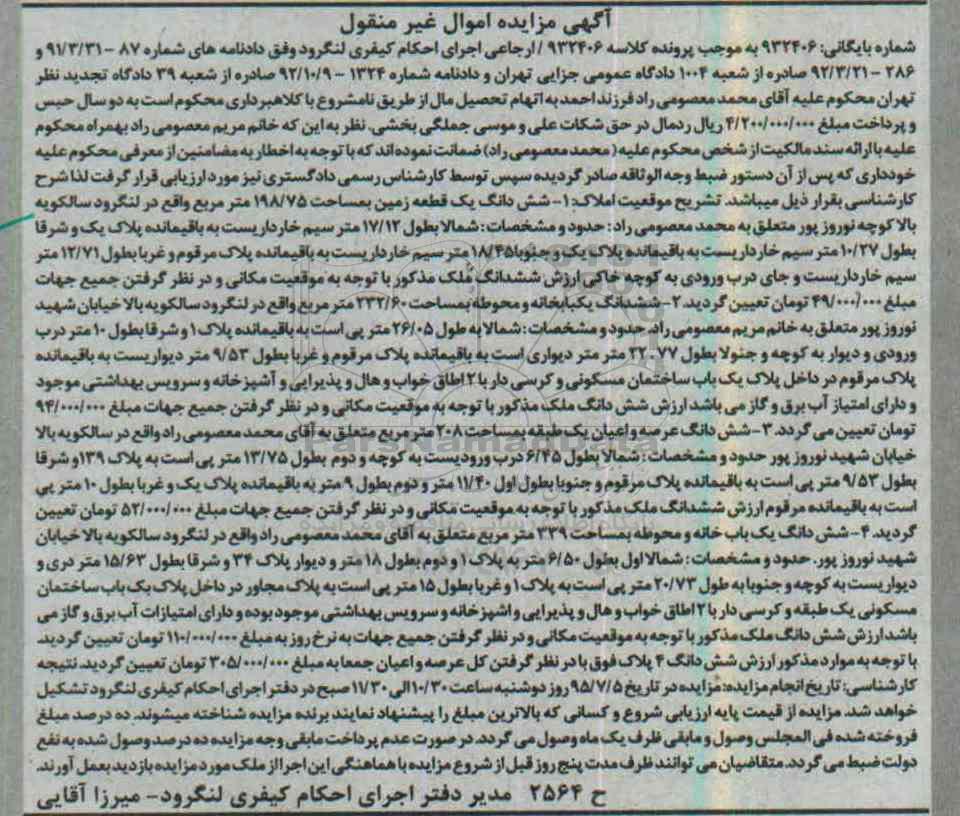 آگهی مزایده اموال غیر منقول
شماره بایگانی: ۹۳۲۴۰۶ به موجب پرونده کلاسه ۹۳۲۴۰۶ / ارجاعی اجرای احکام کیفری لنگرود وفق دادنامه های شماره ۸۷ - ۹۱/۳/۳۱ و
۲۸۶ - ۹۲/۳/۲۱ صادره از شعبه ۱۰۰۴ دادگاه عمومی جزایی تهران و دادنامه شماره ۱۳۲۴ - ۹۲/۱۰/۹ صادره از شعبه ۳۹ دادگاه تجدید نظر
تهران محکوم علیه آقای محمد معصومی راد فرزند احمد به اتهام تحصیل مال از طریق نامشروع با کلاهبرداری محکوم است به دو سال حبس
و پرداخت مبلغ ۴/۲۰۰/۰۰۰/۰۰۰ ریال ردمال در حق شکات علی و موسی جملگی بخشی. نظر به این که خانم مریم معصومی راد بهمراه محکوم
علیه با ارائه سند مالکیت از شخص محکوم علیه (محمد معصومی راد) ضمانت نموده اند که با توجه به اخطار به مضامنین از معرفی محکوم علیه
خودداری که پس از آن دستور ضبط وجه الوثاقه صادر گردیده سپس توسط کارشناس رسمی دادگستری نیز مورد ارزیابی قرار گرفت لذا شرح
کارشناسی بقرار ذیل میباشد. تشریح موقعیت املاک: ۱- شش دانگ یک قطعه زمین بمساحت ۱۹۸/۷۵ متر مربع واقع در لنگرود سالکویه
بالا کوچه نوروز پور متعلق به محمد معصومی راد: حدود و مشخصات: شمالا بطول ۱۷/۱۲ متر سیم خارداریست به باقیمانده پلاک یک و شرقا
بطول ۱۰/۲۷ متر سیم خارداریست به باقیمانده پلاک یک و جنوبا ۱۸/۴۵ متر سیم خارداریست به باقیمانده پلاک مرقوم و غربا بطول ۱۲/۷۱ متر
سیم خارداریست و جای درب ورودی به کوچه خاکی ارزش ششدانگ ملک مذکور با توجه به موقعیت مکانی و در نظر گرفتن جمیع جهات
مبلغ ۴۹/۰۰۰/۰۰۰ تومان تعیین گردید. ۲- ششدانگ یکبابخانه و محوطه بمساحت ۲۳۲/۶۰ متر مربع واقع در لنگرود سالکویه بالا خیابان شهید
نوروز پور متعلق به خانم مریم معصومی راد. حدود و مشخصات: شمالا به طول ۲۶/۰۵ متر پی است به باقیمانده پلاک ۱ و شرقا بطول ۱۰ متر درب
ورودی و دیوار به کوچه و جنولا بطول ۲۲.۷۷ متر متر دیواری است به باقیمانده پلاک مرقوم و غربا بطول ۹/۵۳ متر دیواریست به باقیمانده
پلاک مرقوم در داخل پلاک یک باب ساختمان مسکونی و کرسی دار با ۲ اطاق خواب و هال و پذیرایی و آشپزخانه و سرویس بهداشتی موجود
و دارای امتیاز آب برق و گاز می باشد ارزش شش دانگ ملک مذکور با توجه به موقعیت مکانی و در نظر گرفتن جمیع جهات مبلغ ۹۴/۰۰۰/۰۰۰
تومان تعیین می گردد. ۳- شش دانگ عرصه و اعیان یک طبقه بمساحت ۲۰۸ متر مربع متعلق به آقای محمد معصومی راد واقع در سالکویه بالا
خیابان شهید نوروز پور حدود و مشخصات: شمالا بطول ۶/۴۵ درب ورودیست به کوچه و دوم بطول ۱۳/۷۵ متر پی است به پلاک ۱۳۹ و شرقا
بطول ۹/۵۳ متر پی است به باقیمانده پلاک مرقوم و جنوبا بطول اول ۱۱/۴۰ متر و دوم بطول ۹ متر به باقیمانده پلاک یک و غربا بطول ۱۰ متر پی
است به باقیمانده مرقوم ارزش ششدانگ ملک مذکور با توجه به موقعیت مکانی و در نظر گرفتن جمیع جهات مبلغ ۵۲/۰۰۰/۰۰۰ تومان تعیین
گردید. ۴- شش دانگ یک باب خانه و محوطه بمساحت ۳۳۹ متر مربع متعلق به آقای محمد معصومی راد واقع در لنگرود سالکویه بالا خیابان
شهید نوروز پور. حدود و مشخصات: شمالا اول بطول ۶/۵۰ متر به پلاک ۱ و دوم بطول ۱۸ متر و دیوار پلاک ۳۴ و شرقا بطول ۱۵/۶۳ متر دری و
دیواریست به کوچه و جنوبا به طول ۲۰/۷۳ متر پی است به پلاک ۱ و غربا بطول ۱۵ متر پی است به پلاک مجاور در داخل پلاک یک باب ساختمان
مسکونی یک طبقه و کرسی دار با ۲ اطاق خواب و هال و پذیرایی و اشپزخانه و سرویس بهداشتی موجود بوده و دارای امتیازات آب برق و گاز می
باشد ارزش شش دانگ ملک مذکور با توجه به موقعیت مکانی و در نظر گرفتن جمیع جهات به نرخ روز به مبلغ ۱۱۰/۰۰۰/۰۰۰ تومان تعیین گردید.
با توجه به موارد مذکور ارزش شش دانگ ۴ پلاک فوق با در نظر گرفتن کل عرصه و اعیان جمعا به مبلغ ۳۰۵/۰۰۰/۰۰۰ تومان تعیین گردید. نتیجه
کارشناسی: تاریخ انجام مزایده: مزایده در تاریخ ۹۵/۷/۵ روز دوشنبه ساعت ۱۰/۳۰ الی ۱۱/۳۰ صبح در دفتر اجرای احکام کیفری لنگرود تشکیل
خواهد شد. مزایده از قیمت پایه ارزیابی شروع و کسانی که بالاترین مبلغ را پیشنهاد نمایند برنده مزایده شناخته میشوند. ده درصد مبلغ
فروخته شده فی المجلس وصول و مابقی ظرف یک ماه وصول می گردد. در صورت عدم پرداخت مابقی وجه مزایده ده درصد وصول شده به نفع
دولت ضبط می گردد. متقاضیان می توانند ظرف مدت پنج روز قبل از شروع مزایده با هماهنگی این اجرا از ملک مورد مزایده بازدید بعمل آورند.
ح ۲۵۶۴ مدیر دفتر اجرای احکام کیفری لنگرود- میرزا آقایی
ParsNamadData